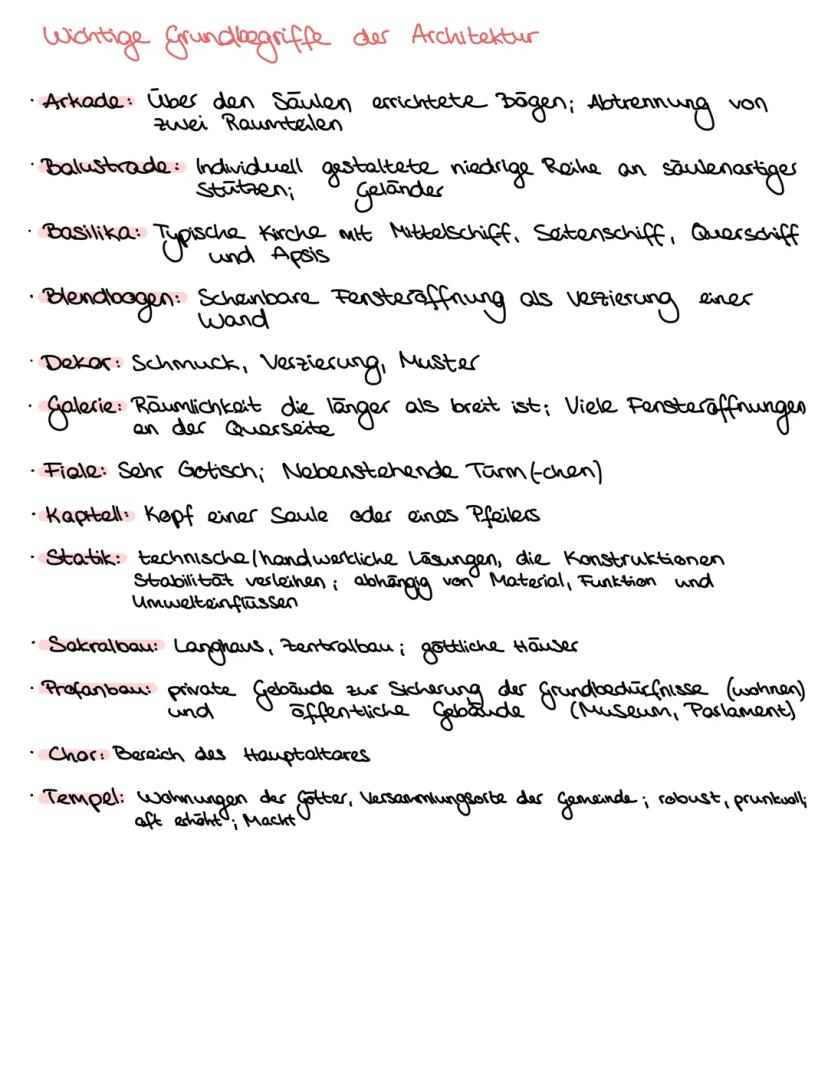 Wichtige Grundbegriffe der Architektur
· Arkade: Über den Säulen errichtete Bögen; Abtrennung von
zwei Raumteilen
· Balustrade: Individuell gestaltete niedrige Reihe an säulenartiger
Stützen; Geländer
· Basilika: Typische Kirche mit Mittelschiff, Seitenschiff, Querschiff
und Apsis
· Blendbogen: Scheinbare Fensteröffnung als Verzierung einer
Wand
· Dekor: Schmuck, Verzierung, Muster
· Galerie: Räumlichkeit die länger als breit ist; Viele Fensteröffnungen
an der Querseite
· Fiale: Sehr Gotisch; Nebenstehende Türm(-chen)
· Kapitell: Kopf einer Säule oder eines Pfeilers
· Statik: technische/handwerkliche Lösungen, die Konstruktionen
Stabilität verleihen; abhängig von Material, Funktion und
Umwelteinflüssen
· Sakralbau: Langhaus, Zentralbau; göttliche Häuser
· Profanbau: private Gebäude zur Sicherung der Grundbedürfnisse (wohnen)
und öffentliche Gebäude (Museum, Parlament)
· Chor: Bereich des Hauptaltares
· Tempel: Wohnungen der Götter, Versammlungsorte der Gemeinde; robust, prunkvoll;
oft erhöht; Macht